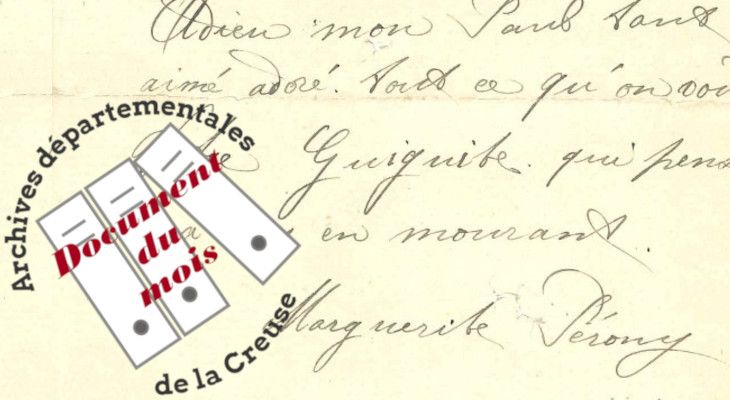 Adieu mon Paul tant
aimé adoré. tout ce qu'on voi
Guiguite. qui pens
en mourant.
Marguerite Pérony
Archives départementales
Document
du
mois
de la Creuse